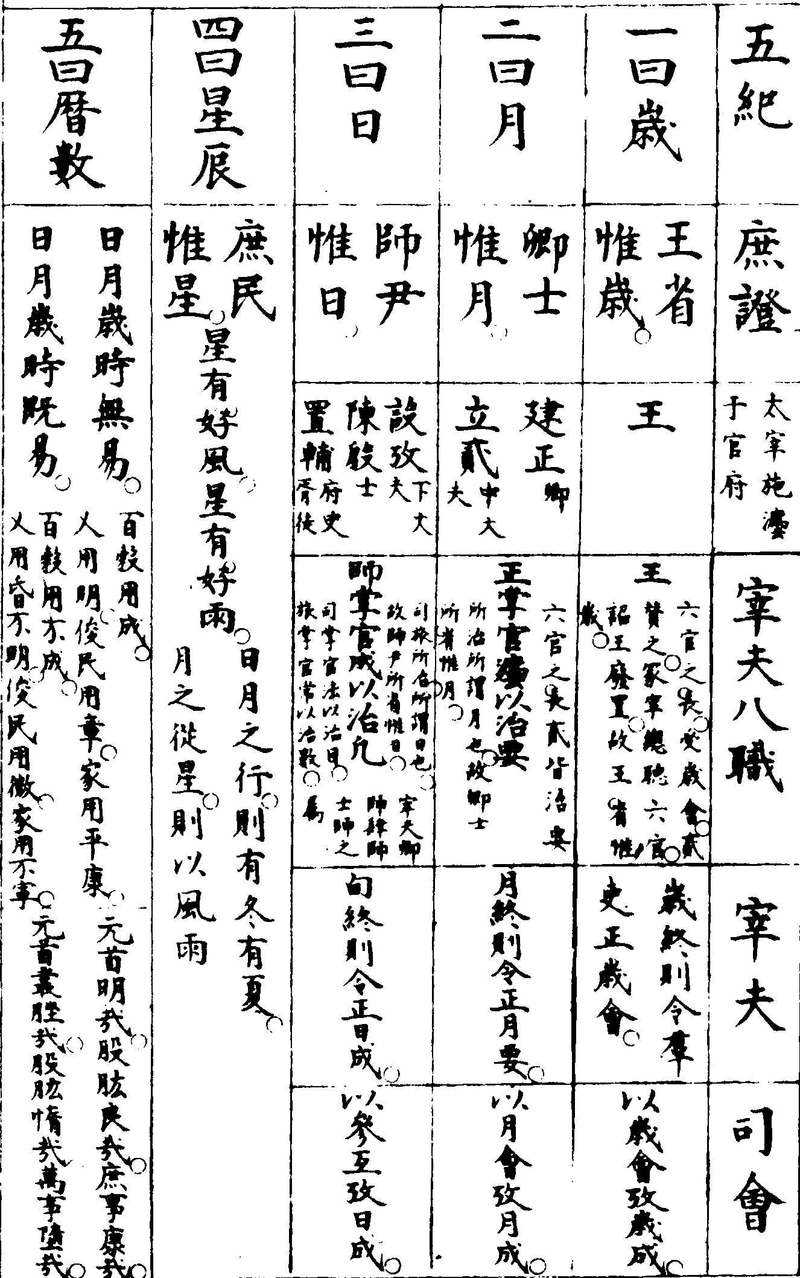 五紀
庶證
太宰施灋
于官府
宰夫八職
宰夫
司會
一曰歲
王省
惟歲
王
王
六官之長受歲會貳
贊之冢宰總聽六官
詔王廢置故王省惟
歲
歲終則令羣
吏正歲會
以歲會攷歲成
二曰月
卿士
惟月
建正卿
立貳中大
夫
正掌官灋以治要
六官之長貳皆治要
所治所謂月也故卿士
所省惟月
月終則令正月要
以月會攷月成
三曰日
師尹
惟日
設攷下大
夫
陳殷士
置輔府史
胥徒
師掌官成以治凡
司旅所治所謂日也
故師尹所省惟日
司掌官法以治目
旅掌官常以治數
宰夫鄉
師肆師
士師之
屬
旬終則令正日成
以參互攷日成
四曰星辰
庶民
惟星
星有好風星有好雨
日月之行則有冬有夏
月之從星則以風雨
五曰曆數
日月歲時無易
百穀用成
乂用明俊民用章家用平康
元首明哉股肱良哉庶事康哉
日月歲時既易
百穀用不成
乂用昏不明俊民用微家用不寧
元首叢脞哉股肱惰哉萬事墮哉